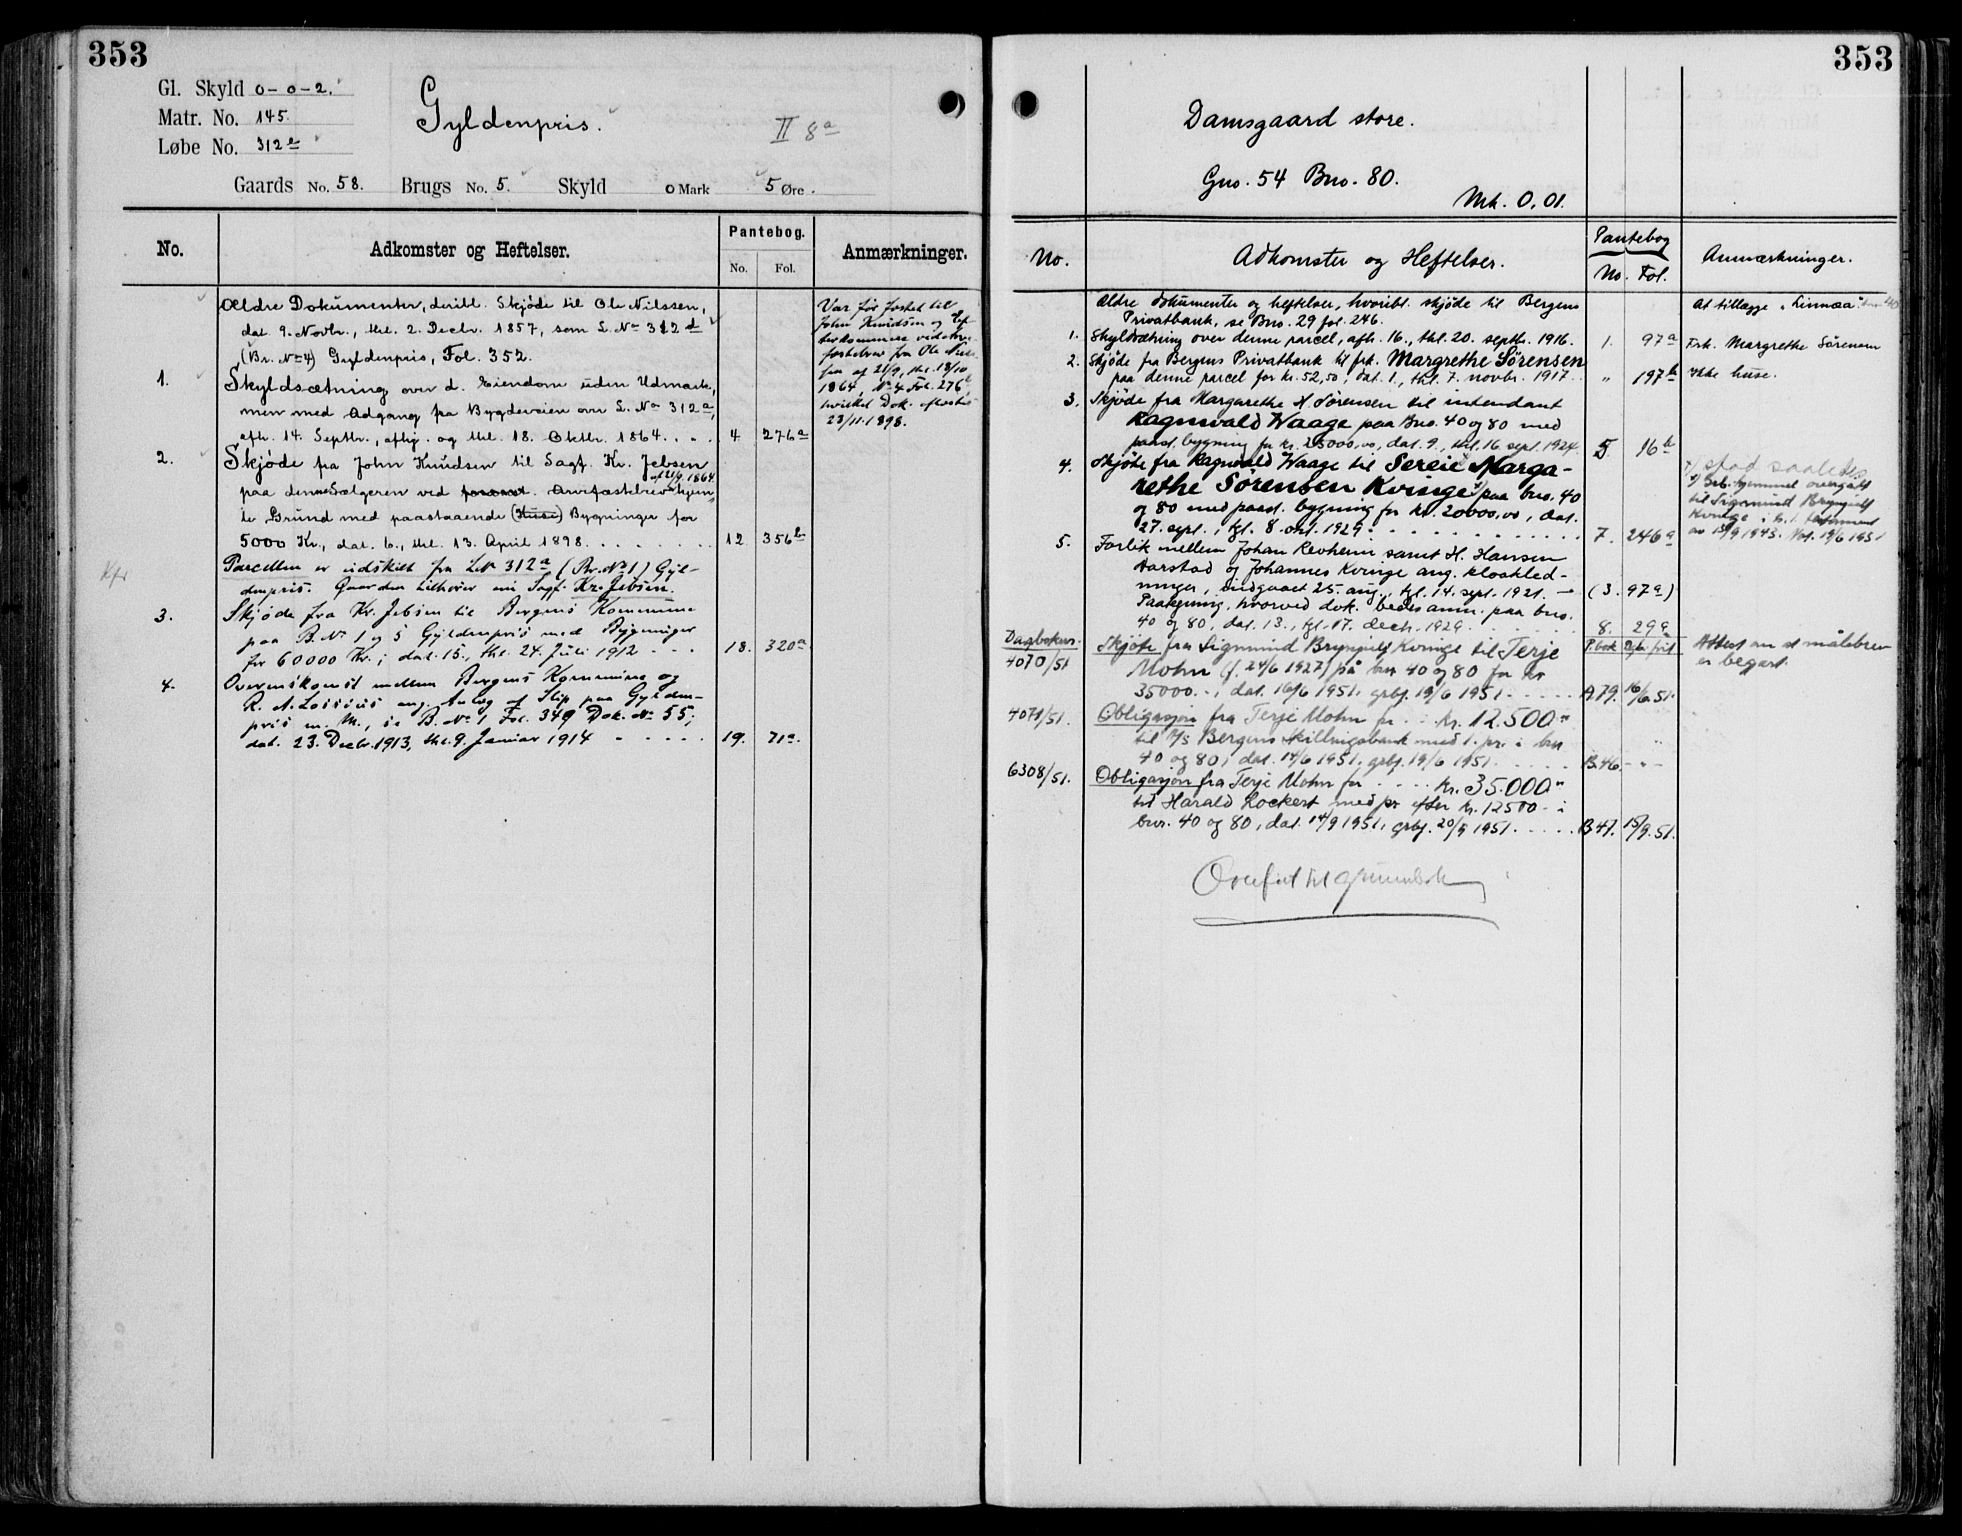 353
Gl. Skyld 0-0-2.
Matr. No. 145.
Løbe No. 312e
Gyldenpris.
II 8a
Gaards No. 58. Brugs No. 5. Skyld 0 Mark 5 Øre.
No.
Adkomster og Heftelser.
Pantebog.
No. Fol.
Anmærkninger.
Ældre Dokumenter, deribl. Skjøde til Ole Nilssen,
dat. 9. Novbr., thl. 2. Decbr. 1857, som L. No 312d
(Br. No 4) Gyldenpris, Fol. 352.
1. Skyldsætning over d. Eiendom uden Udmark,
men med Adgang fra Bygdeveien over L. No 312a,
afh. 14. Septbr., afhj. og thl. 18. Oktbr. 1864. . . 4 276a
2. Skjøde fra John Knudsen til Sagf. Kr. Jebsen
af 21/9. 1864
paa denne Sælgeren ved Arvefæstebrev hjem-
lede Grund med paastaaende (Huse) Bygninger for
5000 Kr., dat. 6., thl. 13. April 1898. . . . . 12 356b
Parcellen er udskilt fra L.No 312a (Br. No 1) Gyl-
denpris. Gaarden tilhører nu Sagf. Kr. Jebsen.
Kfr
3. Skjøde fra Kr. Jebsen til Bergens Kommune
paa B. No 1 og 5 Gyldenpris med Bygninger
for 60000 Kr.; dat. 15., thl. 24. Juli 1912 - - - 18. 320a
4. Overenskomst mellem Bergens Kommune og
R. N. Loisius ang. Anlæg af Slip paa Gylden-
pris m. M., se B. No 1 Fol. 349 Dok. No 55;
dat. 23. Decbr. 1913, thl. 9. Januar 1914 - - - - - 19. 71a.
Var før fæstet til
John Knudsen og Ef-
terkommere ved Arve-
fæstebrev fra Ole Nils-
sen af 21/9, thl. 18/10
1864, No 4 Fol. 276b
hvilket Dok. aflystes
23/11. 1898.
353
Damsgaard store.
Gno. 54 Bno. 80.
Mk. 0,01.
No.
Adkomster og Heftelser.
Pantebog
No. Fol.
Anmærkninger.
Ældre dokumenter og heftelser, hvoribl. skjøde til Bergens
Privatbank, se Bno. 29 fol. 246.
At tillægge "Linnæa" bno 40
1. Skyldsætning over denne parcel, afh. 16., thl. 20. septbr. 1916. 1. 97a
Frk. Margrethe Sørensen
2. Skjøde fra Bergens Privatbank til frk. Margrethe Sørensen
paa denne parcel for kr. 52,50, dat. 1., thl. 7. novbr. 1917. " 197b
Ikke huse.
3. Skjøde fra Margarethe N. Sørensen til intendant
Ragnvald Waage paa Bno. 40 og 80 med
paast. bygning for kr. 25000,00, dat. 9., thl. 16 sept. 1924. 5. 16b
4. Skjøte fra Ragnvald Waage til Sereie Marga-
rethe Sørensen Kvinge x) paa bno. 40
og 80 med paast. bygning for kr. 20000,00, dat.
27. sept., tgl. 8. okt. 1929. . . . . . . . . . . 7. 246a
x) stod saaledes
x) Grb. hjemmel overgått
til Sigmund Brynjulf
Kvinge i h. t. testament
av 13/9 1943. Not. 19/6 1951
5. Forlik mellem Johan Revheim samt H. Hansen
Aarstad og Johannes Kvinge ang. kloakled-
ninger, indgaaet 25. aug., tgl. 14. sept. 1921. - (3. 97a)
Paategning, hvorved dok. bedes anm. paa bno.
40 og 80, dat. 13., tgl. 17. decb. 1929. . . . . . 8. 29a
Dagboknr. P.bok
4070/51 Skjøte fra Sigmund Brynjulf Kvinge til Terje
Mohn (f. 24/6 1927) på bnr 40 og 80 for kr
35000.-, dat. 16/6 1951, grbf. 19/6 1951 . . . . . A79. 16/6.51.
Attest om at målebrev
er begært.
4071/51. Obligasjon fra Terje Mohn for . . kr. 12.500"
til A/S Bergens Skillingsbank med 1. pr. i bnr
40 og 80, dat. 14/6 1951, grbf. 19/6 1951. . . . . . B46. - " -
6308/51. Obligasjon fra Terje Mohn for . . . . kr. 35.000"
til Harald Lockert med pr. efter kr. 12500.- i
bnr. 40 og 80, dat. 14/9 1951, grbf. 20/9 1951. . . . . B47. 15/9.51.
Overført til grunnbok